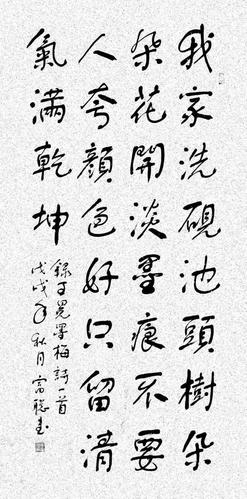 我家洗硯池頭樹朵
朵花開淡墨痕不要
人夸顏色好只留清
氣滿乾坤
錄王冕墨梅詩一首
戊戌年秋月富聡書